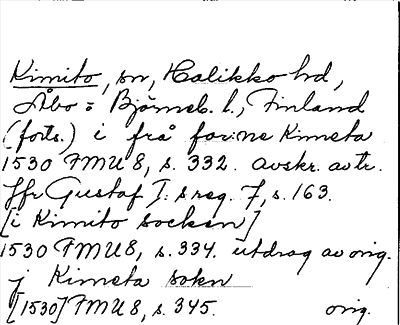 Kimito, sn, Halikko hd,
Åbo= Björneb. l., Finland
(forts.) i frå forne Kimeta
1530 FMU 8, s. 332. avskr. av tr.
Jfr Gustaf I:s reg. 7, s. 163.
[i Kimito socken]
1530 FMU 8, s. 334. utdrag av orig.
j Kimeta sokn
[1530] FMU 8, s. 345. orig.